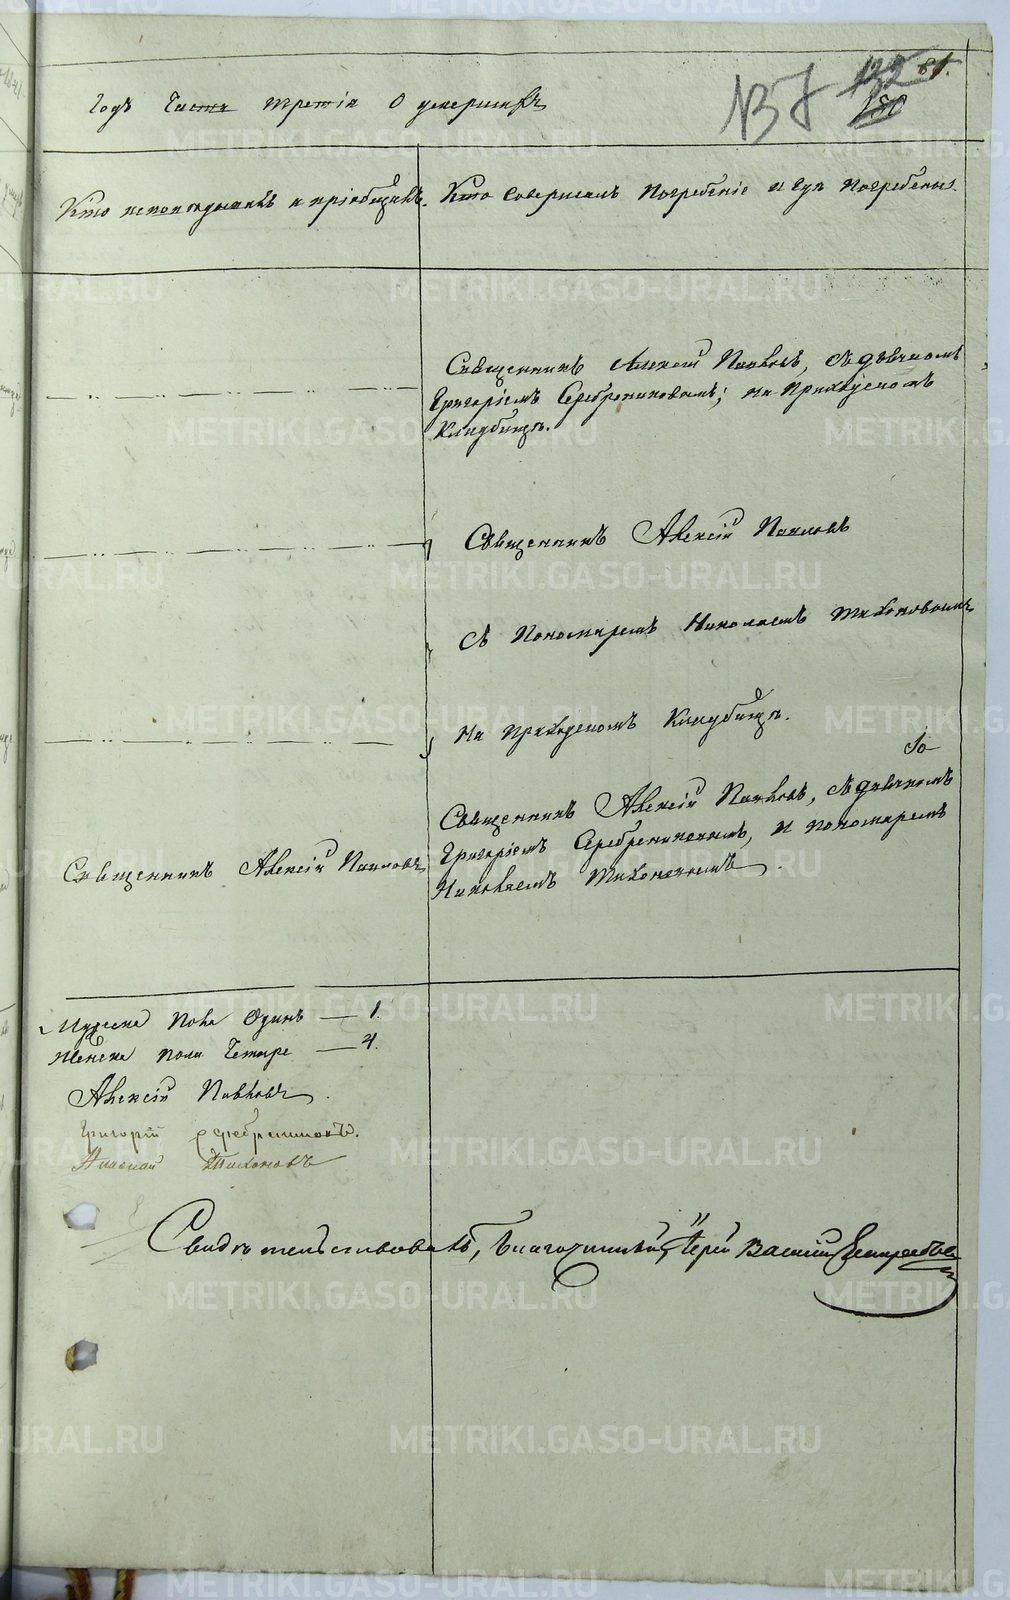 137 81.
Годъ Часть третія О умершихъ
Кто исповѣдывалъ и пріобщалъ. Кто совершалъ погребеніе и гдѣ погребены.
Священникъ Алексій Павловъ, съ дьячкомъ
Григоріемъ Серебрениковымъ; на приходскомъ
кладбищѣ.
Священникъ Алексій Павловъ
съ пономаремъ Николаемъ Тихоновымъ
на приходскомъ кладбищѣ.
Священникъ Алексій Павловъ, съ дьячкомъ
Григоріемъ Серебрениковымъ, и пономаремъ
Николаемъ Тихоновымъ.
Священникъ Алексій Павловъ
Мужеска пола Одинъ — 1.
Женска пола Четыре — 4.
Алексій Павловъ.
Григорій Серебрениковъ.
Николай Тихоновъ
Свидѣтельствовалъ, Благочинный, Іерей Василій
METRIKI.GASO-URAL.RU